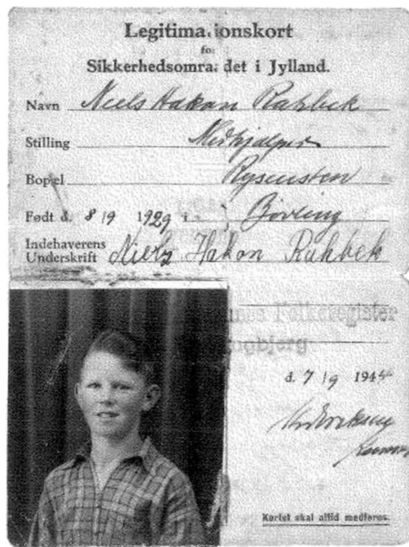 Legitimationskort
for
Sikkerhedsområdet i Jylland.
Navn Niels Hakon Rahbek
Stilling Medhjælper
Bopæl Rysensten
Født d. 8/9 1929 i Bøvling
Indehaverens
Underskrift Niels Hakon Rahbek
Folkeregister
d. 7/9 1944
Kortet skal altid medføres.